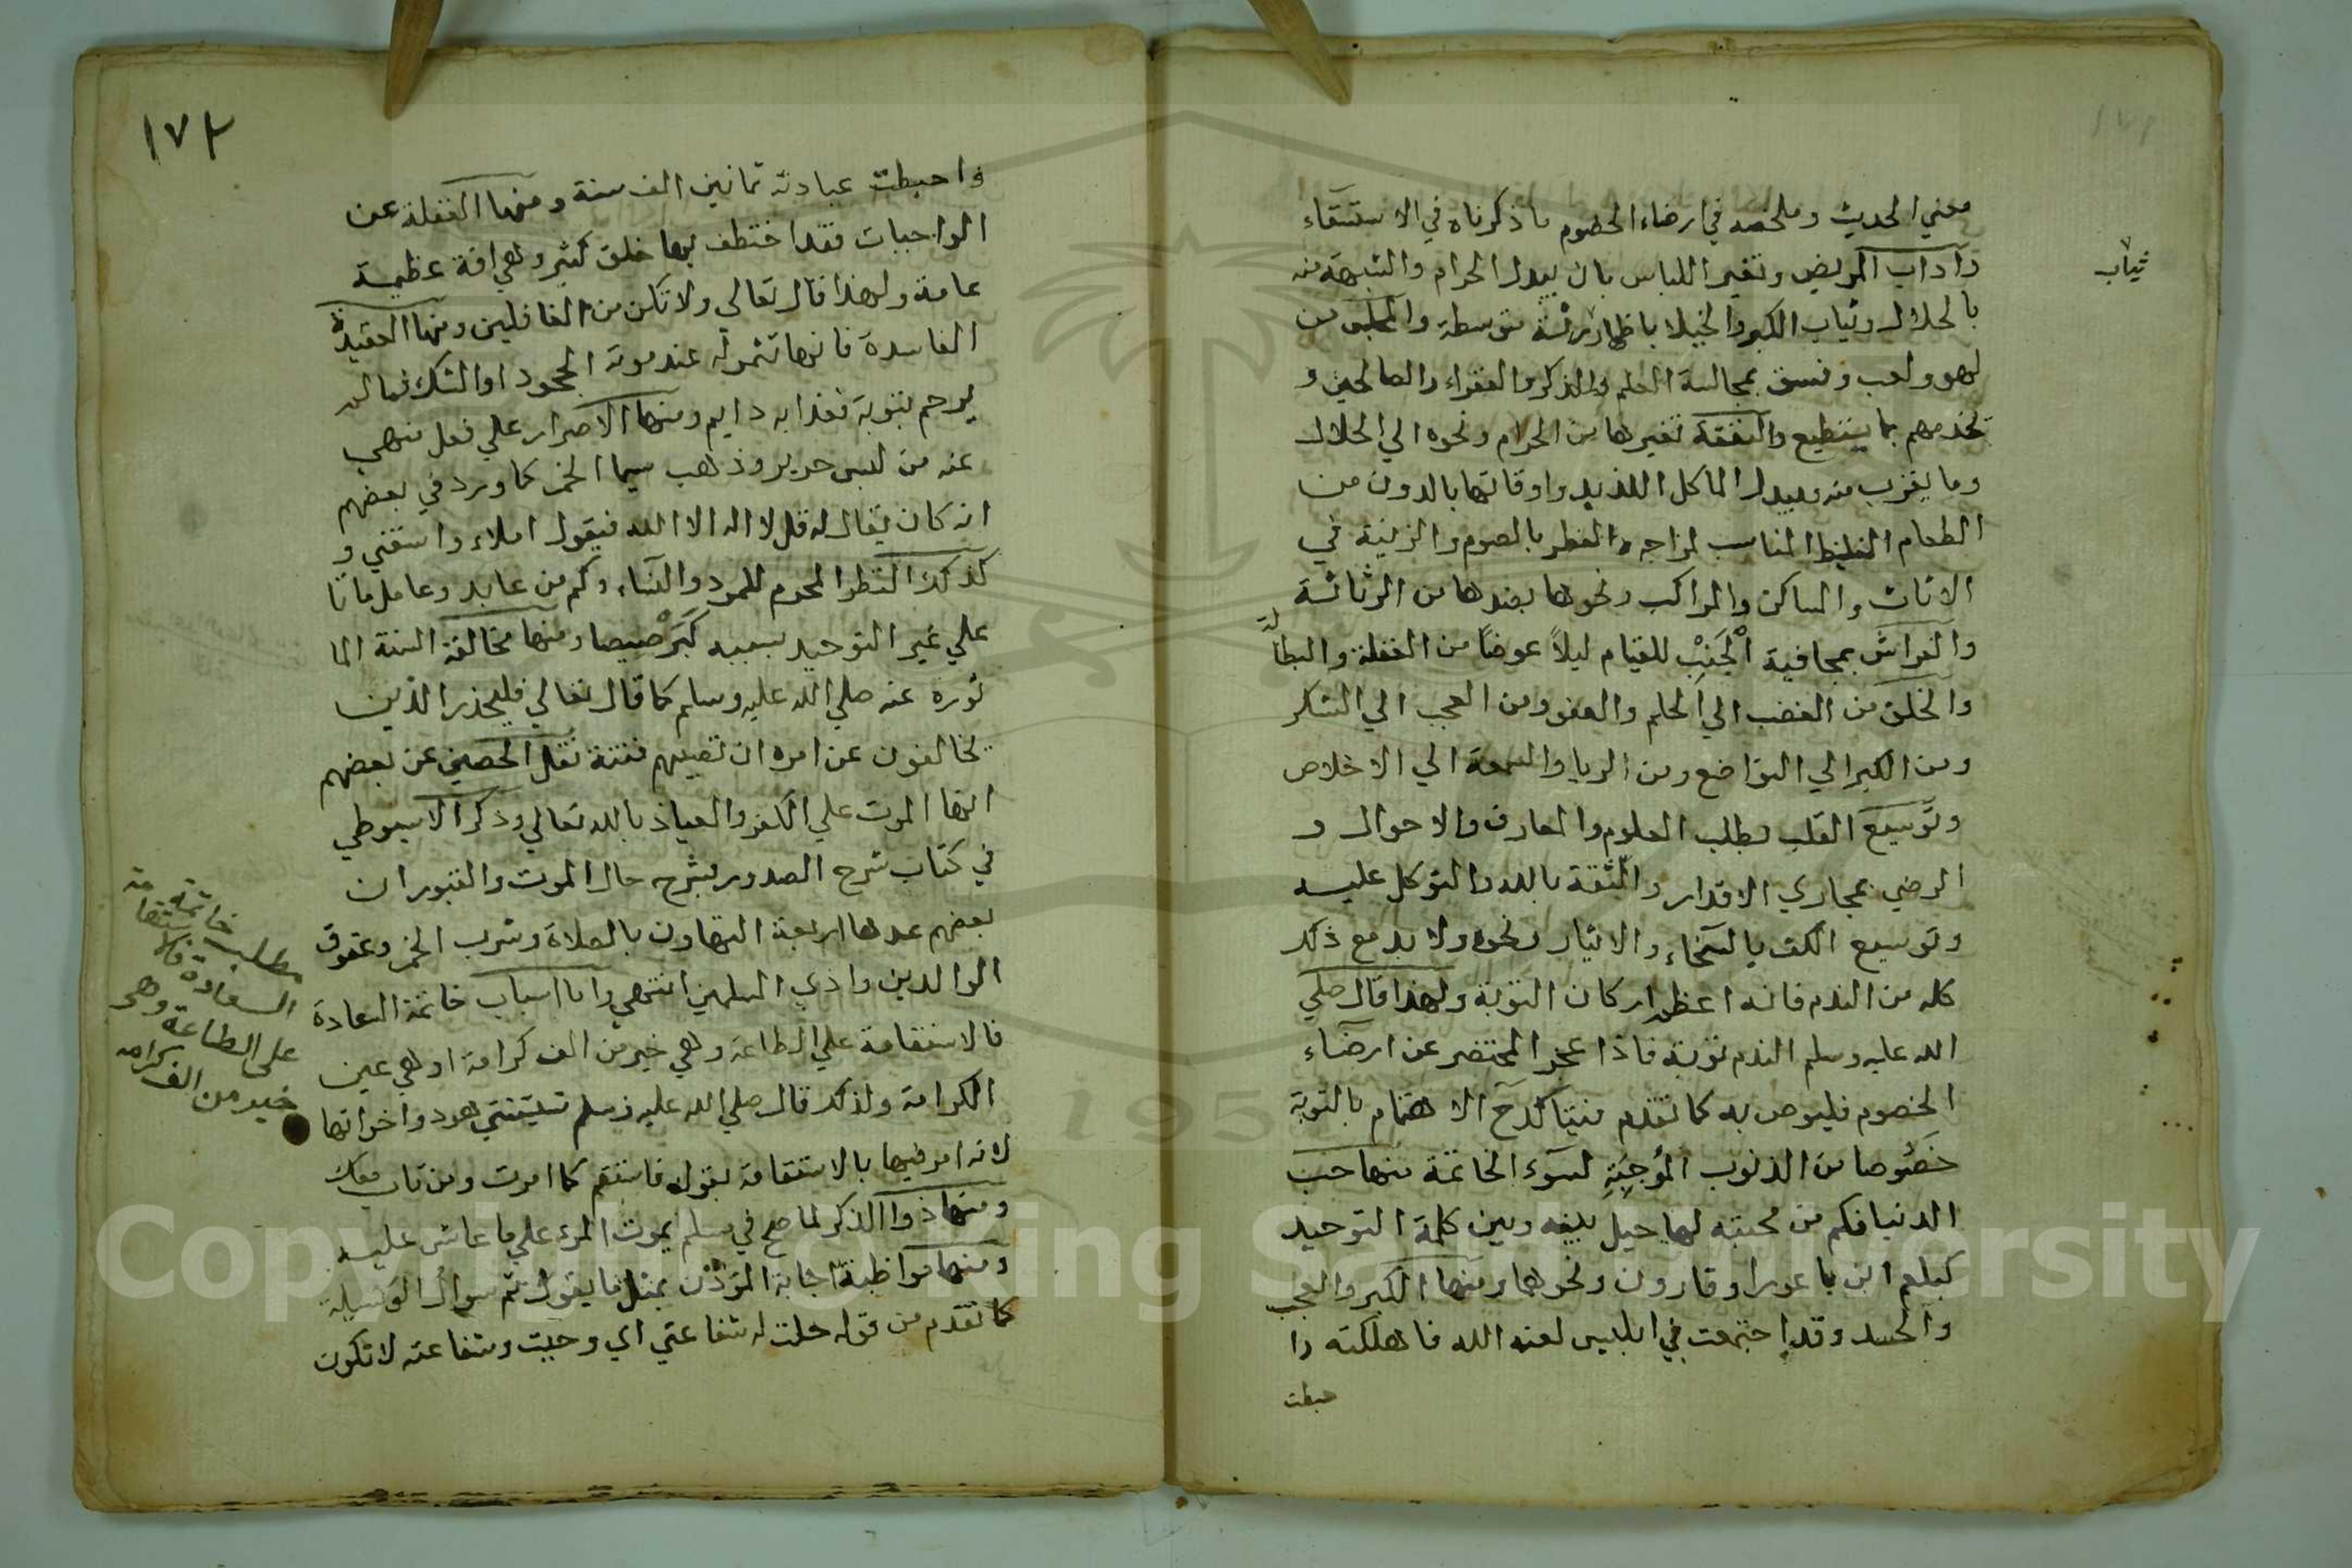 معني الحديث وملخصه في ارضاء الخصوم ما ذكرناه في الاستسقاء
واداب المريض وتغير اللباس بان يبدل الحرام والشبهة منه
ثياب
بالحلال وثياب الكبر والخيلا باظهار رثة متوسطة والمجلس من
لهو ولعب وفسق بمجالسة العلم والذكر والفقراء والصالحين و
تخدمهم بما يستطيع والنفقة تغيرها من الحرام ونحوه الي الحلال
وما يقرب منه ويبدل الماكل اللذيد واوقاتها بالدون من
الطعام الغليظ المناسب لمزاجه والفطر بالصوم والزينة في
الاثاث والمساكن والمراكب ونحوها بضدها من الرثاثة
والفراش بمجافية الجنب للقيام ليلا عوضا من الغفلة والبطالة
والخلق من الغضب الي الحلم والعفو ومن العجب الي الشكر
ومن الكبر الي التواضع ومن الريا والسمعة الي الاخلاص
وتوسيع القلب بطلب العلوم والمعارف والاحوال و
الرضي بمجاري الاقدار والثقة بالله والتوكل عليه
وتوسيع الكف بالسخاء والايثار ونحوه ولا بد مع ذلك
كله من الندم فانه اعظم اركان التوبة ولهذا قال صلي
الله عليه وسلم الندم توبة فاذا عجز المحتضر عن ارضاء
الخصوم فليوص به كما تقدم فيتاكد ح الاهتمام بالتوبة
خصوصا من الذنوب الموجبة لسوء الخاتمة منها حب
الدنيا فكم من محبته لها حيل بينه وبين كلمة التوحيد
كبلعم ابن باعورا وقارون ونحوهما ومنها الكبر والعجب
والحسد وقد اجتمعت في ابليس لعنه الله فاهلكته وا
حبطت
١٧٢
واحبطت عبادته ثمانين الف سنة ومنها الغفلة عن
الواجبات فقد اختطف بها خلق كثير وهي افة عظيمة
عامة ولهذا قال تعالي ولا تكن من الغافلين ومنها العقيدة
الفاسدة فانها تثمر له عند موته الجحود او الشك فما له
يرحم بتوبة فعذابه دايم ومنها الاصرار علي فعل منهي
عنه من لبس حرير وذهب سيما الخمر كما ورد في بعضهم
انه كان يقال له قل لا اله الا الله فيقول املاء واسقني و
كذلك النظر المحرم للمرد والنساء وكم من عابد وعامل ماتا
علي غير التوحيد بسببه كبرصيصا ومنها مخالفة السنة الما
ثورة عنه صلي الله عليه وسلم كما قال تعالي فليحذر الذين
يخالفون عن امره ان تصيبهم فتنة نقل الحصيني عن بعضهم
انها الموت علي الكفر والعياذ بالله تعالي وذكر الاسيوطي
في كتاب شرح الصدور بشرح حال الموت والقبور ان
بعضهم عدها اربعة التهاون بالصلاة وشرب الخمر وعقوق
الوالدين واذي المسلمين انتهي واما اسباب خاتمة السعادة
فالاستقامة علي الطاعة وهي خير من الف كرامة او هي عين
الكرامة ولذلك قال صلي الله عليه وسلم شيبتني هود واخواتها
لانه امر فيها بالاستقامة بقوله فاستقم كما امرت ومن تاب معك
ومنها ذوا الذكر لما صح في مسلم يموت المرء علي ما عاش عليه
ومنها مواظبة اجابة المؤذن بمثل ما يقول ثم سوال الوسيلة
كما تقدم من قوله حلت له شفاعتي اي وجبت وشفاعته لا تكون
مطلب خاتمة
السعادة فالاستقامة
على الطاعة وهي
خير من الف كرامة
Copyright © King Saud University
1957